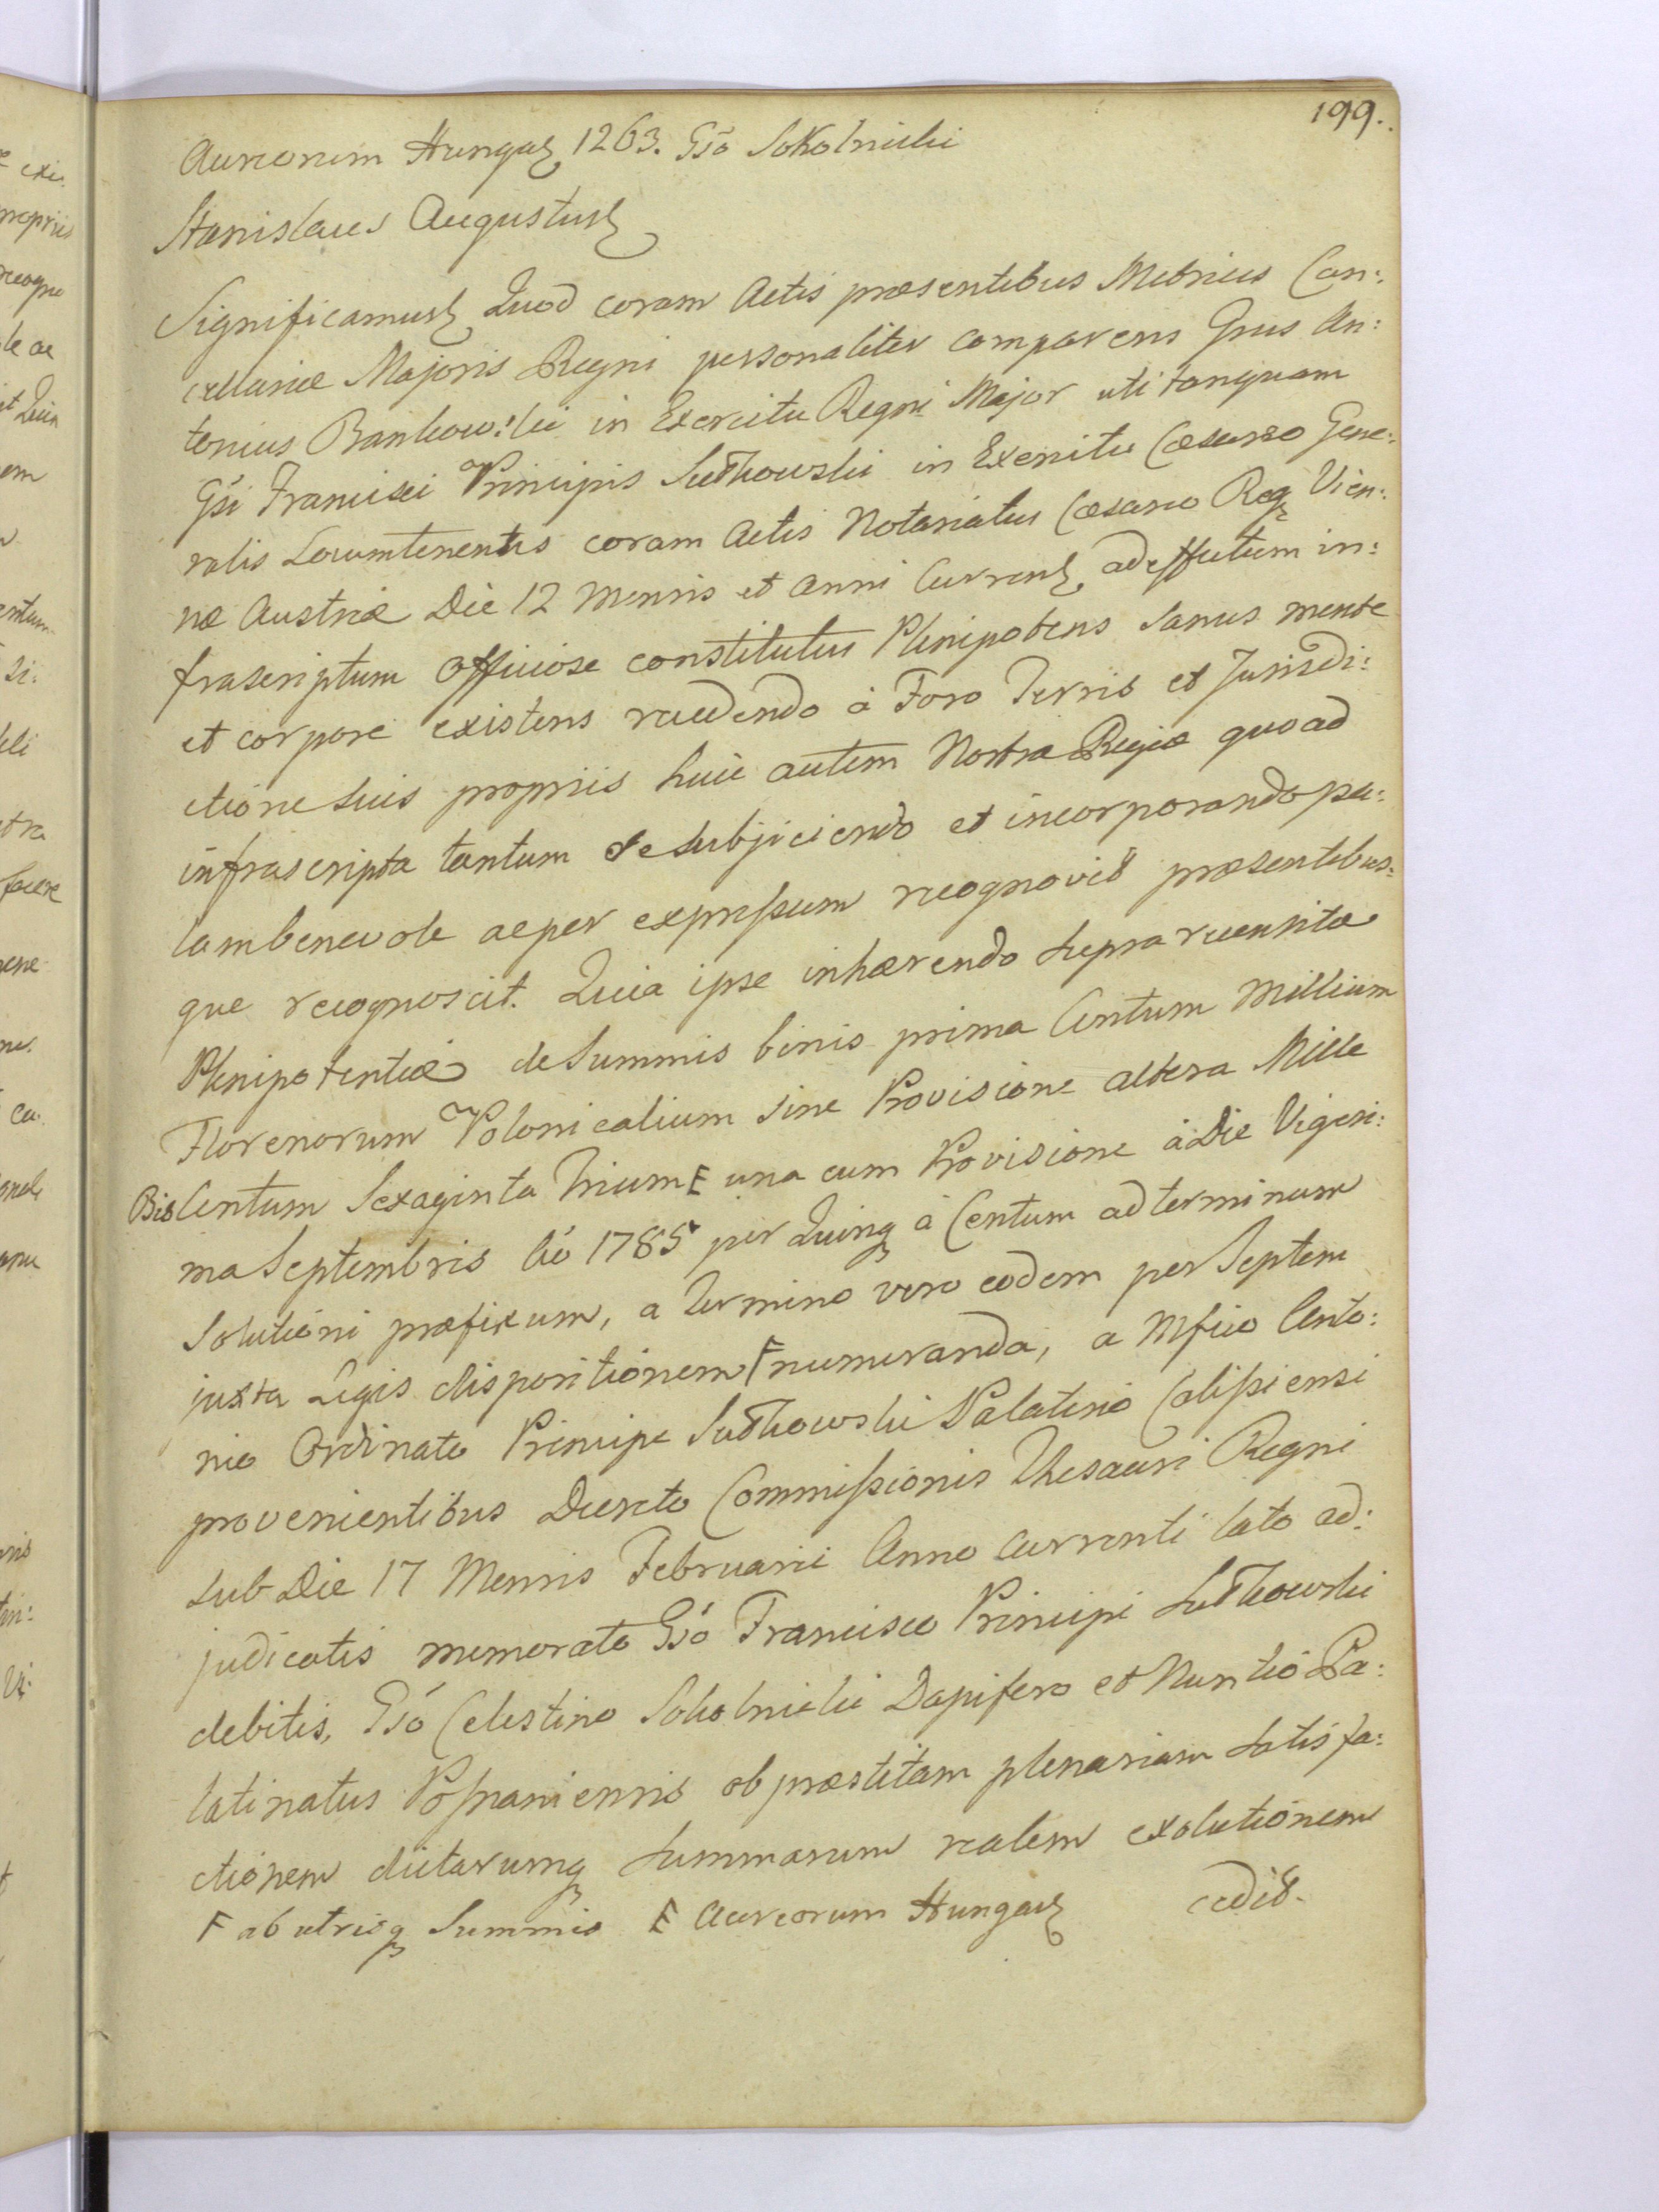 199.
Aureorum Hungar 1263. Gsō Sokolnicki
Stanislaus Augustus
Significamus Quod coram Actis præsentibus Metrices Can:
cellariæ Majoris Regni personaliter comparens Gnus An:
tonius Bankowski in Exercitu Regni Major uti tanquam
Gsi Francisci Principis Sułkowski in Exercitu Cæsareo Gene:
ralis Locumtenentis coram Actis Notariatus Cæsareo Reg Vien:
næ Austriæ Die 12 Mensis et Anni Curren ad effectum in:
frascriptum Officiose constitutus Plenipotens Sanus mente
et corpore existens recedendo à Foro Terris et Jurisdi:
ctione suis propriis huic autem Nostræ Regiæ quoad
infrascripta tantum se subjiciendo et incorporando pa:
lam benevole ac per expressum recognovit præsentibus:
que recognoscit. Quia ipse inhærendo supra recensitæ
Plenipotentiæ de Summis binis prima Centum Millium
Florenorum Polonicalium sine Provisione altera Mille
Bis Centum Sexaginta Trium F una cum Provisione à Die Vigesi:
ma Septembris Ao 1785 per Quinq à Centum ad terminum
Solutioni præfixum, a Termino vero eodem per Septem
juxta Legis dispositionem F numeranda, a Mfico Anto:
nio Ordinato Principe Sułkowski Palatino Calissiensi
provenientibus Decreto Commissionis Thesauri Regni
sub Die 17 Mensis Februarii Anno Currenti lato ad:
judicatis memorato Gsó Francisco Principi Sułkowski
debitis, Gsó Celestino Sokolnicki Dapifero et Nuntio Pa:
latinatus Posnaniensis ob præstitam plenariam satisfa:
ctionem dictarumq Summarum realem exolutionem
F ab utrisq Summis F Aureorum Hungar cedit.